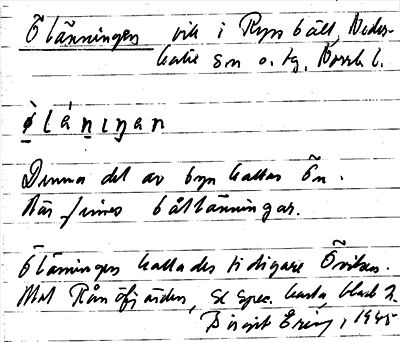 Ölänningen vik i Ryssbält, Neder-
kalix sn o. tg, Norrb. l.
ø̀ l á n ı ŋ a n
Denna del av byn kallas Ön.
Här finns båtlänningar.
Ölänningen kallades tidigare Öviken.
Mot Rånöfjärden, se spec. karta, blad 2.
Birgit Ering, 1945